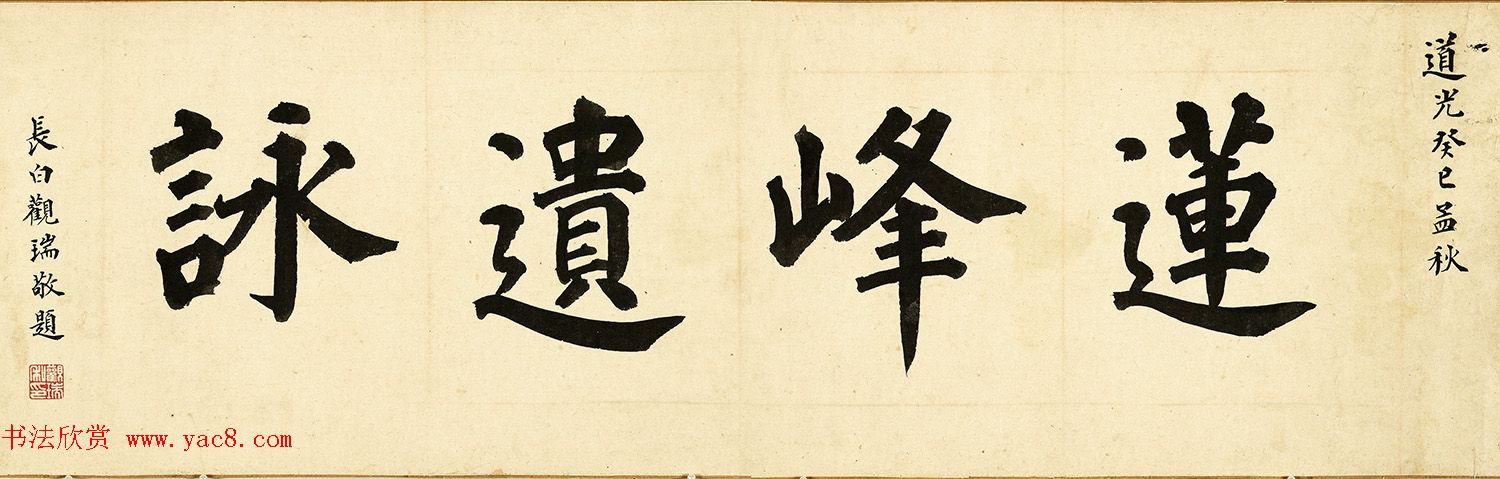 道光癸巳孟秋
蓮峰遺詠
長白觀瑞敬題
书法欣赏 www.yac8.com